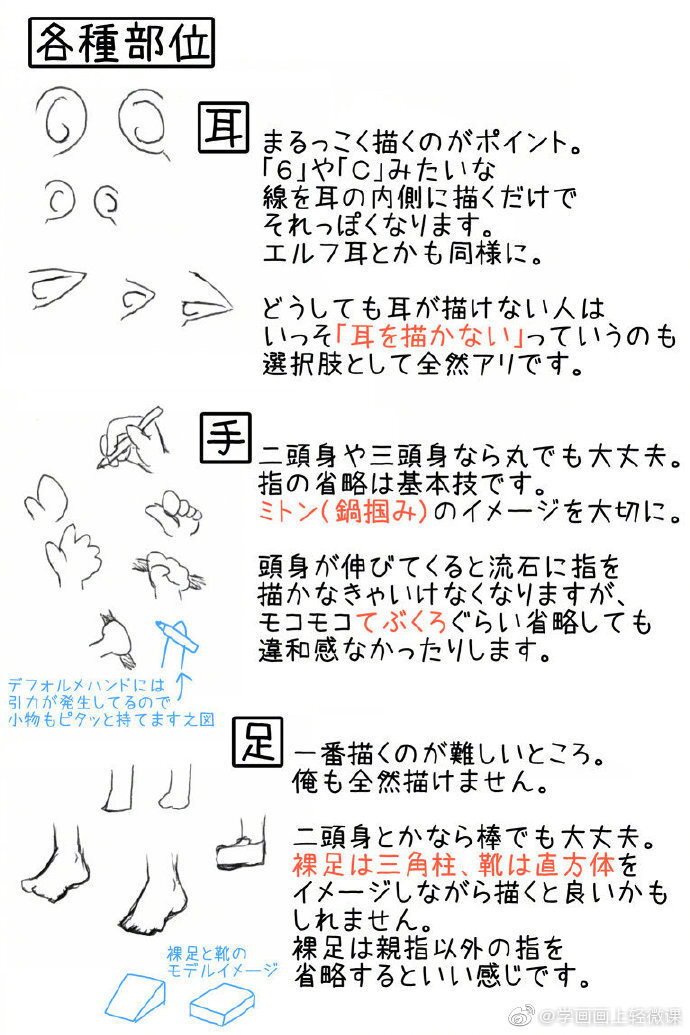 各種部位
耳
まるっこく描くのがポイント。
「6」や「C」みたいな
線を耳の内側に描くだけで
それっぽくなります。
エルフ耳とかも同様に。
どうしても耳が描けない人は
いっそ「耳を描かない」っていうのも
選択肢として全然アリです。
手
二頭身や三頭身なら丸でも大丈夫。
指の省略は基本技です。
ミトン(鍋掴み)のイメージを大切に。
頭身が伸びてくると流石に指を
描かなきゃいけなくなりますが、
モコモコてぶくろぐらい省略しても
違和感なかったりします。
デフォルメハンドには
引力が発生してるので
小物もピタッと持てます之図
足
一番描くのが難しいところ。
俺も全然描けません。
二頭身とかなら棒でも大丈夫。
裸足は三角柱、靴は直方体を
イメージしながら描くと良いかも
しれません。
裸足は親指以外の指を
省略するといい感じです。
裸足と靴の
モデルイメージ
@学画画上轻微课